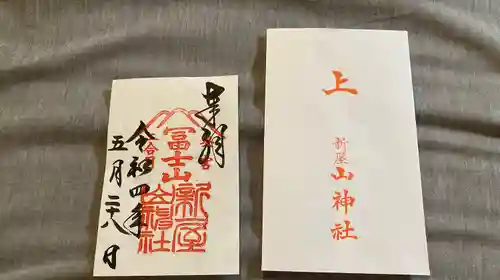 奉拝
冨士山
新屋
山神社
令和四年
五月二十八日
上
新屋
山神社